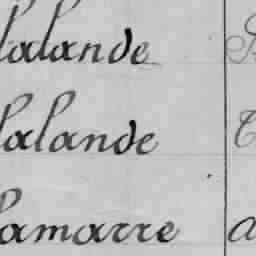 Lalande
Lalande
Lamarre